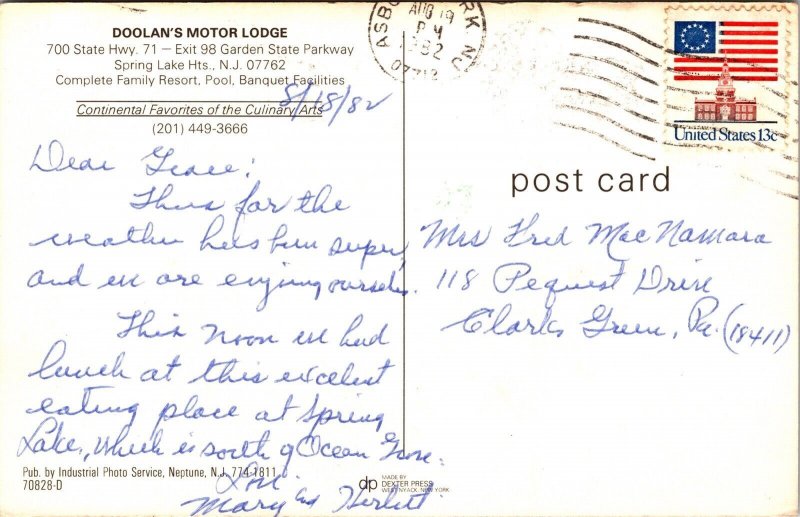 DOOLAN'S MOTOR LODGE
700 State Hwy. 71 – Exit 98 Garden State Parkway
Spring Lake Hts., N.J. 07762
Complete Family Resort, Pool, Banquet Facilities
8/18/82
Continental Favorites of the Culinary Arts
(201) 449-3666
Dear Grace:
Thus far the
weather has been super,
and we are enjoying ourselves.
This noon we had
lunch at this excellent
eating place at Spring
Lake, which is south of Ocean Grove.
Love
Mary and Herbert
Pub. by Industrial Photo Service, Neptune, N.J. 774-1811
70828-D
dp
MADE BY
DEXTER PRESS
WEST NYACK, NEW YORK
PARK NJ
AUG 19
PM
1982
United States 13c
post card
Mrs Fred MacNamara
118 Pequest Drive
Clarks Green, Pa. (18411)